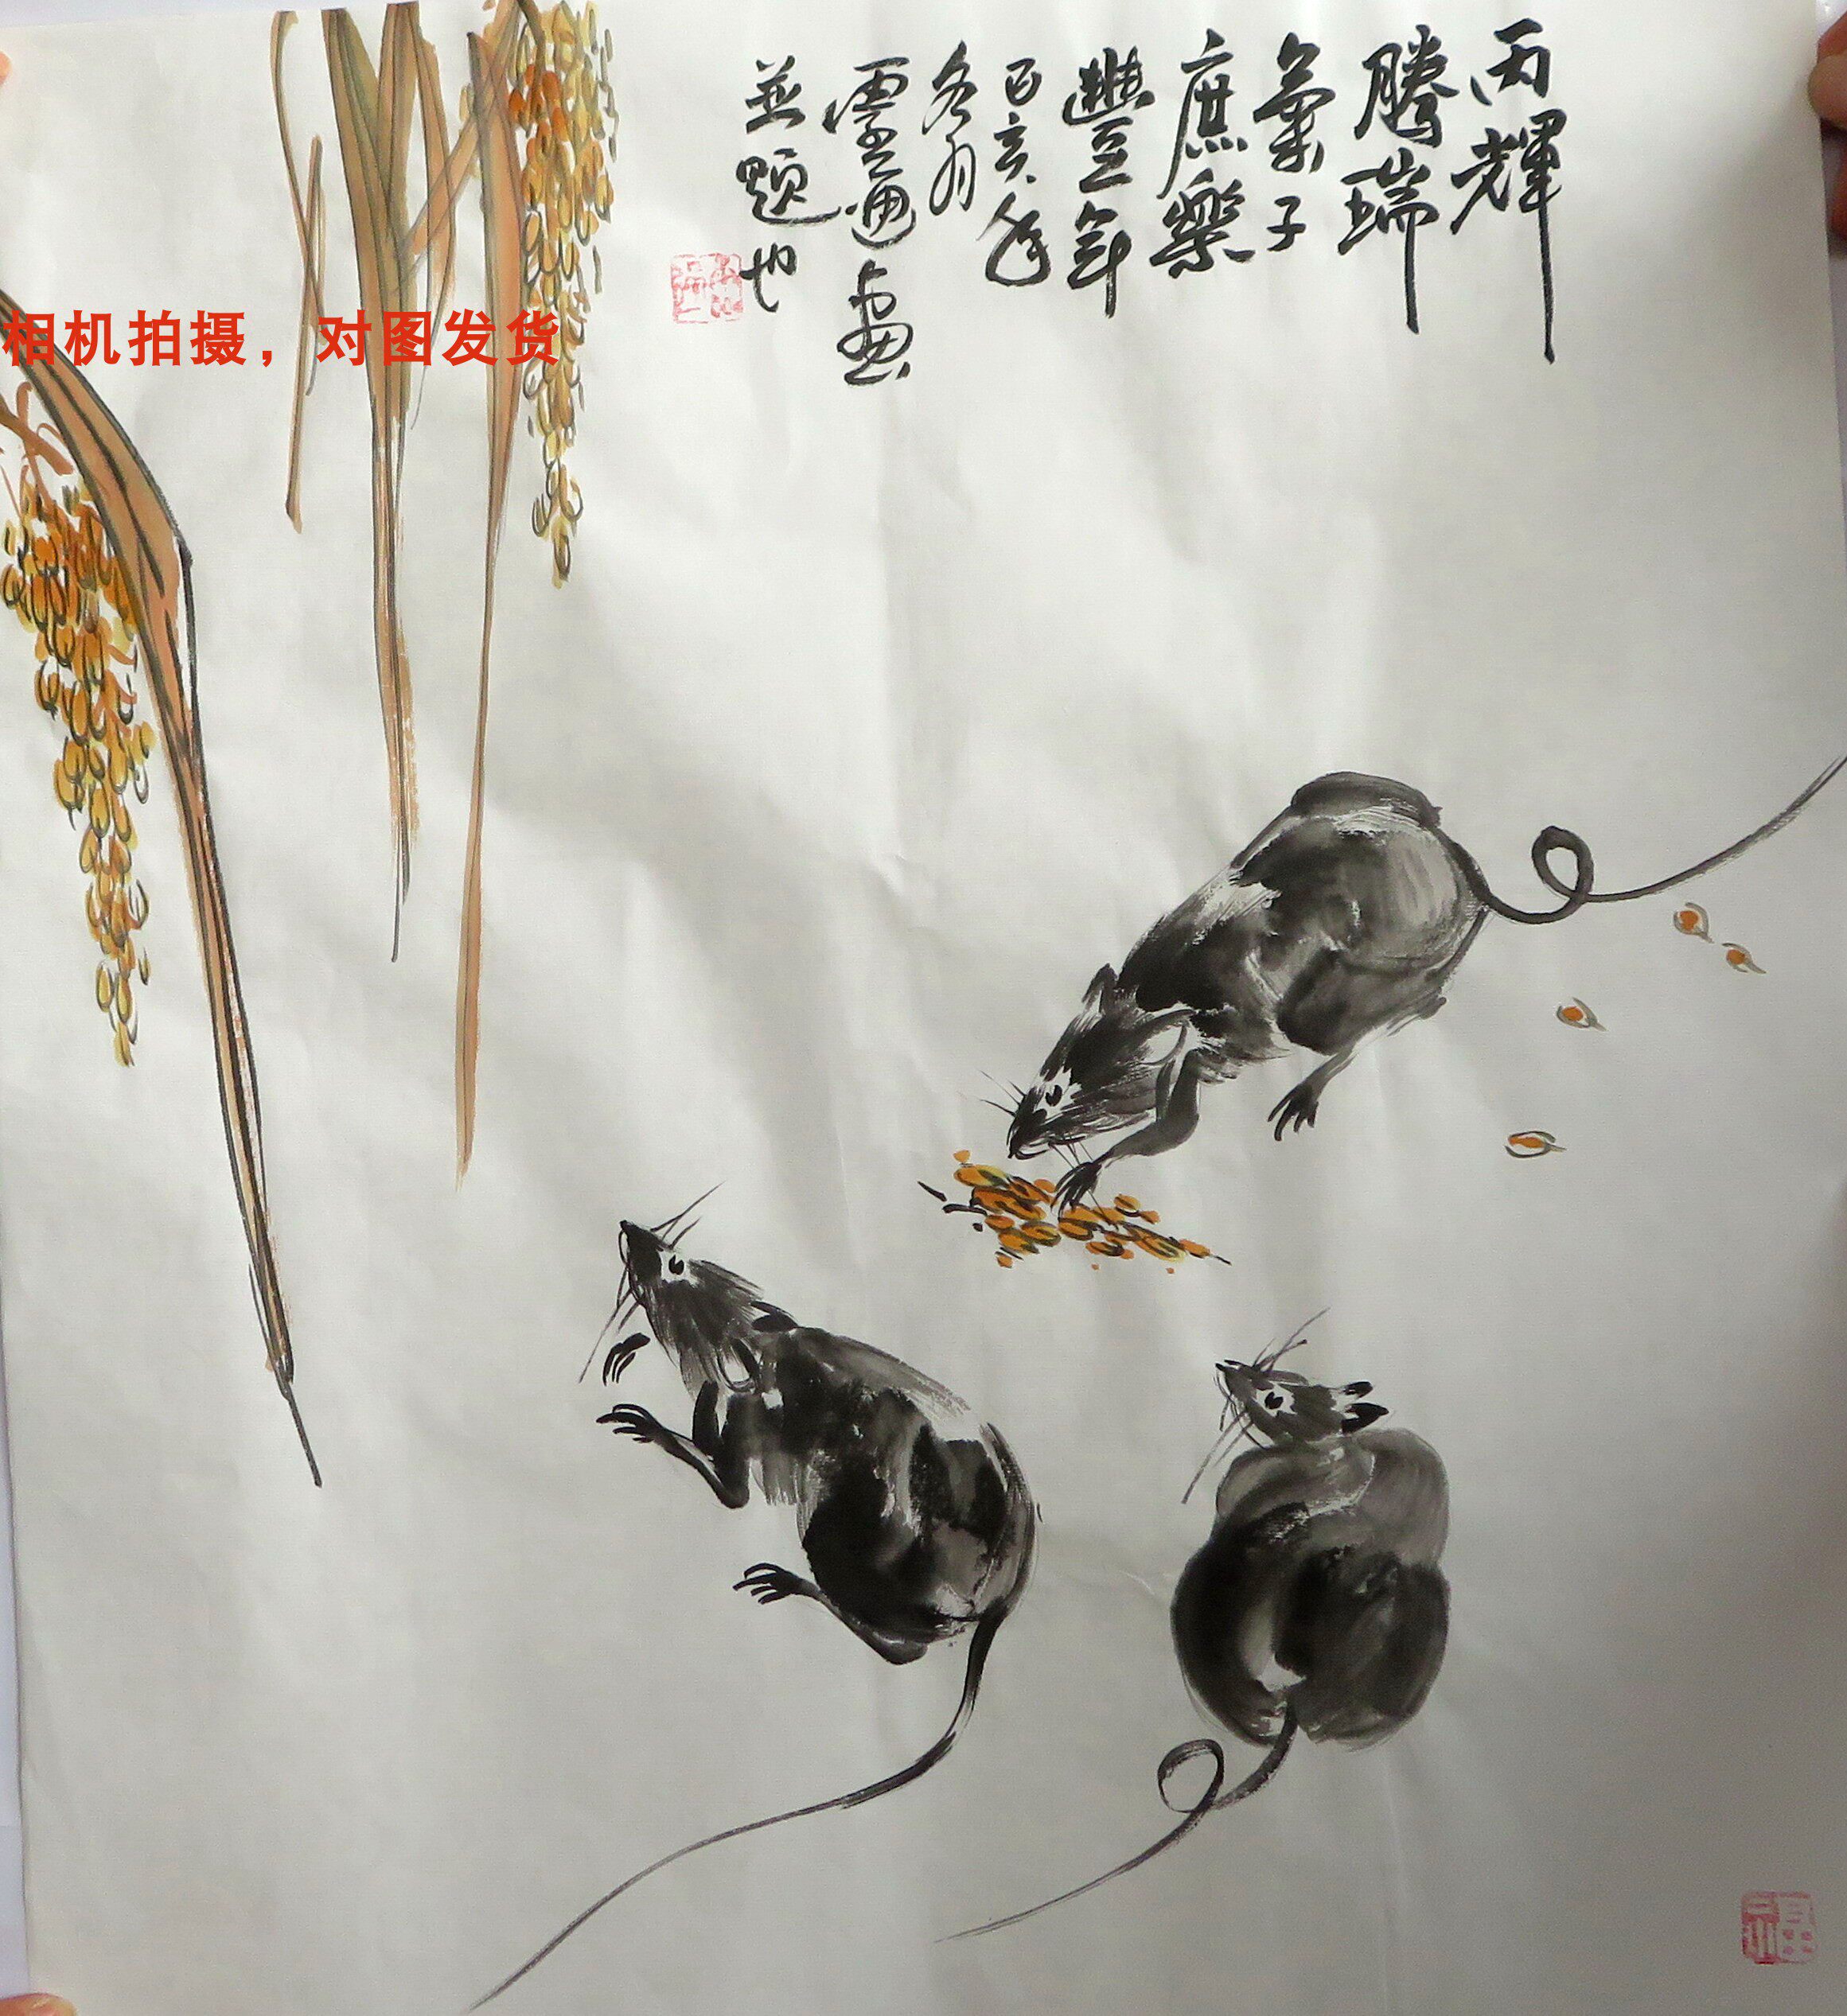 丙輝
騰瑞
氣子
庶樂
豐年
己亥年
冬月
画
並题也
相机拍摄，对图发货
福